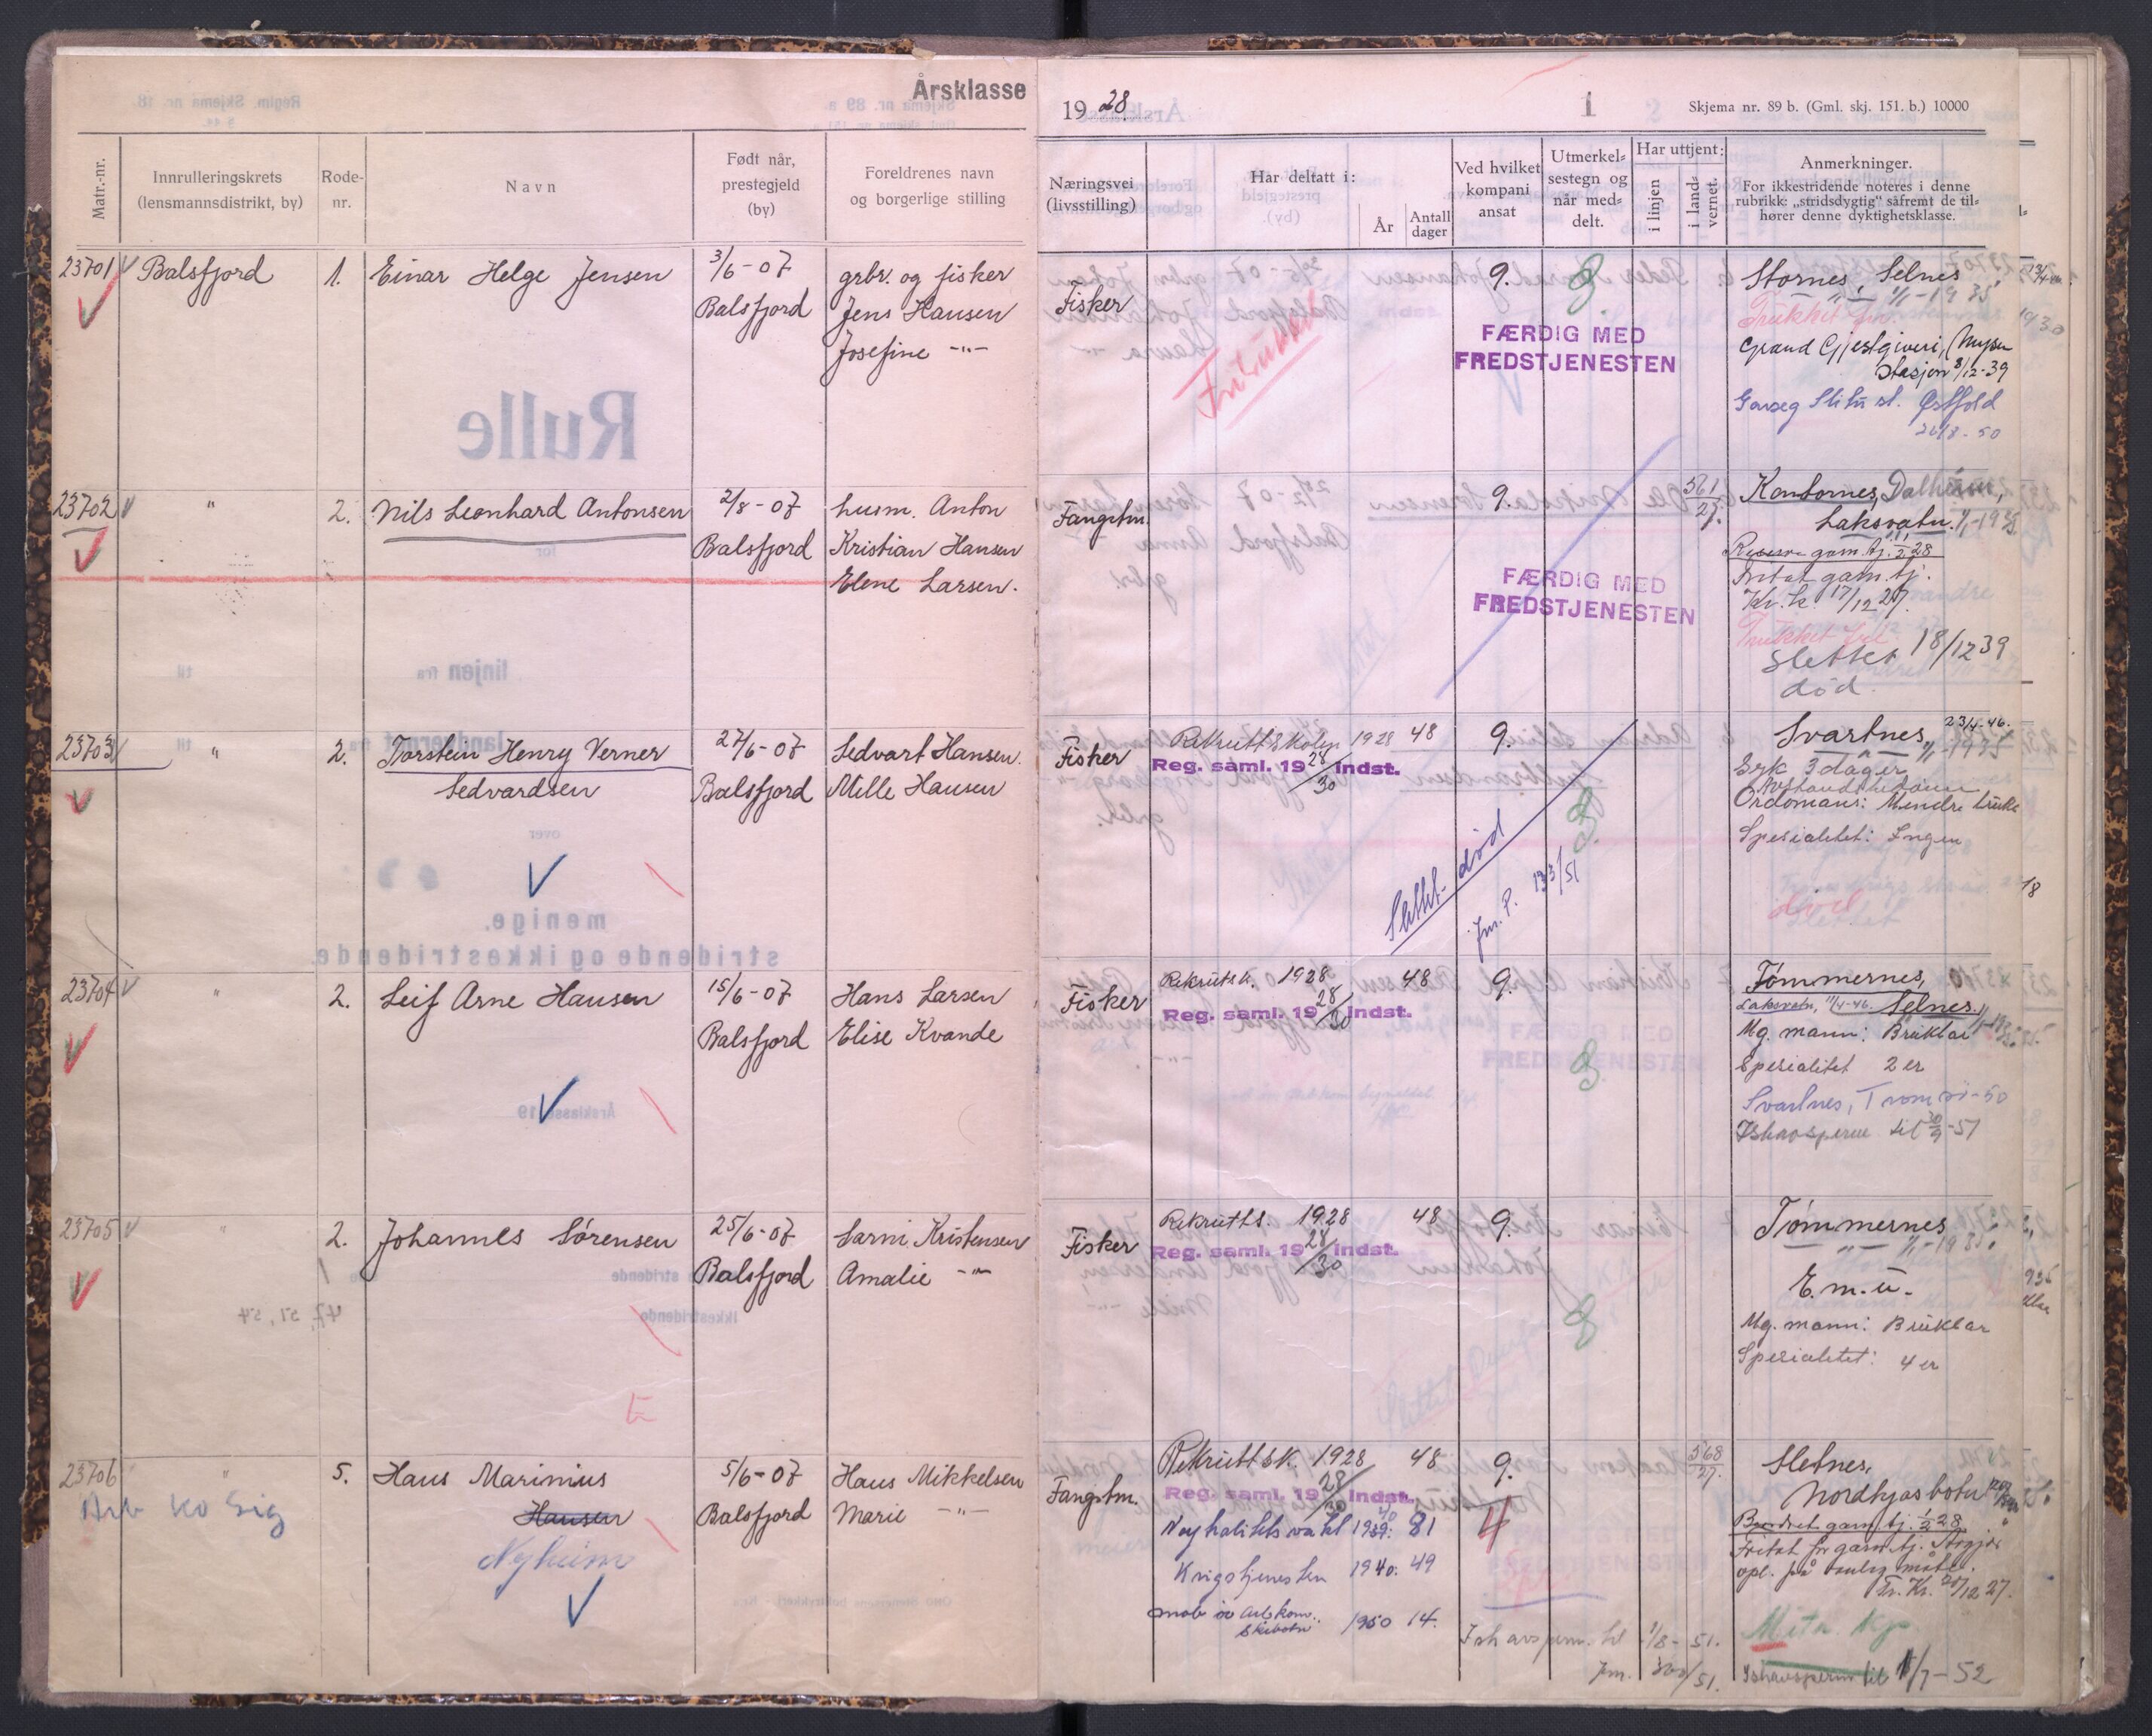 Årsklasse 19 28.
1
Skjema nr. 89 b. (Gml. skj. 151. b.) 10000
Matr.-nr.
Innrulleringskrets
(lensmannsdistrikt, by)
Rode-
nr.
Navn
Født når,
prestegjeld
(by)
Foreldrenes navn
og borgerlige stilling
Næringsvei
(livsstilling)
Har deltatt i:
År
Antall
dager
Ved hvilket
kompani
ansat
Utmerkel-
sestegn og
når med-
delt.
Har uttjent:
i linjen
i land-
vernet.
Anmerkninger.
For ikkestridende noteres i denne
rubrikk: „stridsdygtig" såfremt de til-
hører denne dyktighetsklasse.
23701 Balsfjord 1. Einar Helge Jensen
3/6-07
Balsfjord
grbr. og fisker
Jens Hansen
Josefine -"-
Fisker
Fritukket
9.
FÆRDIG MED
FREDSTJENESTEN
Stornes, Selnes
1/1-1935
Grand Gjestgiveri, Mysen
Stasjon 8/12-39
Østfold
26/8-50
23702 " 2. Nils Leonhard Antonsen
2/8-07
Balsfjord
husm. Anton
Kristian Hansen
Elene Larsen.
Fangstm.
9.
FÆRDIG MED
FREDSTJENESTEN
561
27.
Kantornes,
Laksvatn. 1/1-1935
Fritat garn. tj.
Kr. k. 17/12 27.
Slettet 18/12 39
død.
23703 " 2. Torstein Henry Verner
Sedvardsen
27/6-07
Balsfjord
Sedvart Hansen.
Mille Hansen
Fisker
Rekruttskolen 1928 48
Reg. saml. 19 28/30 indst.
9.
Slettet død
Jnr. P. 133/51
Svartnes 23/4-46.
1/1-1935
3 dager
Ordonans: Mindre brukb
Spesialitet: Ingen
død
23704 " 2. Leif Arne Hansen
15/6-07
Balsfjord
Hans Larsen
Elise Kvande
Fisker
Rekrutsk. 1928 48
Reg. saml. 19 28/30 indst.
9.
Tømmernes,
Laksvatn, 11/4-46. Selnes
Mg. mann: Brukbar
Spesialitet 2er
Svartnes, Tromsø -50
Ishavsperm til 30/9-51
23705 " 2. Johannes Sørensen
25/6-07
Balsfjord
Sarni Kristensen
Amalie -"-
Fisker
Rekrutts. 1928 48
Reg. saml. 19 28/30 indst.
9.
Tømmernes
1/1-1935
E.m.u.
Mg. mann: Brukbar
Spesialitet: 4er
23706 " 5. Hans Marinius
Hansen
Nyheim
Arb ko Sig
5/6-07
Balsfjord
Hans Mikkelsen
Marie -"-
Fangstm.
Rekruttsk. 1928 48
Reg. saml. 19 28/30 indst.
Nøytralitetsvakt 1939: 81
Krigstjenesten 1940: 49
mob. Arb.kom.
Skibotn 1950 14.
9.
4
568
27.
Sletnes,
Nordkjosbotn
garn. tj. 1/2 28
Fritat for garn. tj.
opl. på måte.
Kr. 20/12 27.
Mitr. Kp
Ishavsperm. til 1/8-51.
Jnr. 300/51.
Ishavsperm til 1/7-52